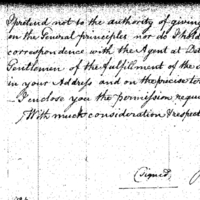 I pretend not to the authority of giving
on the General principles nor do I hold
correspondence with the Agent at Det
Gentlemen of the fulfillment of the
in your Address and on the precise te
I enclose you the permission reque
With much consideration & respect
(signed)